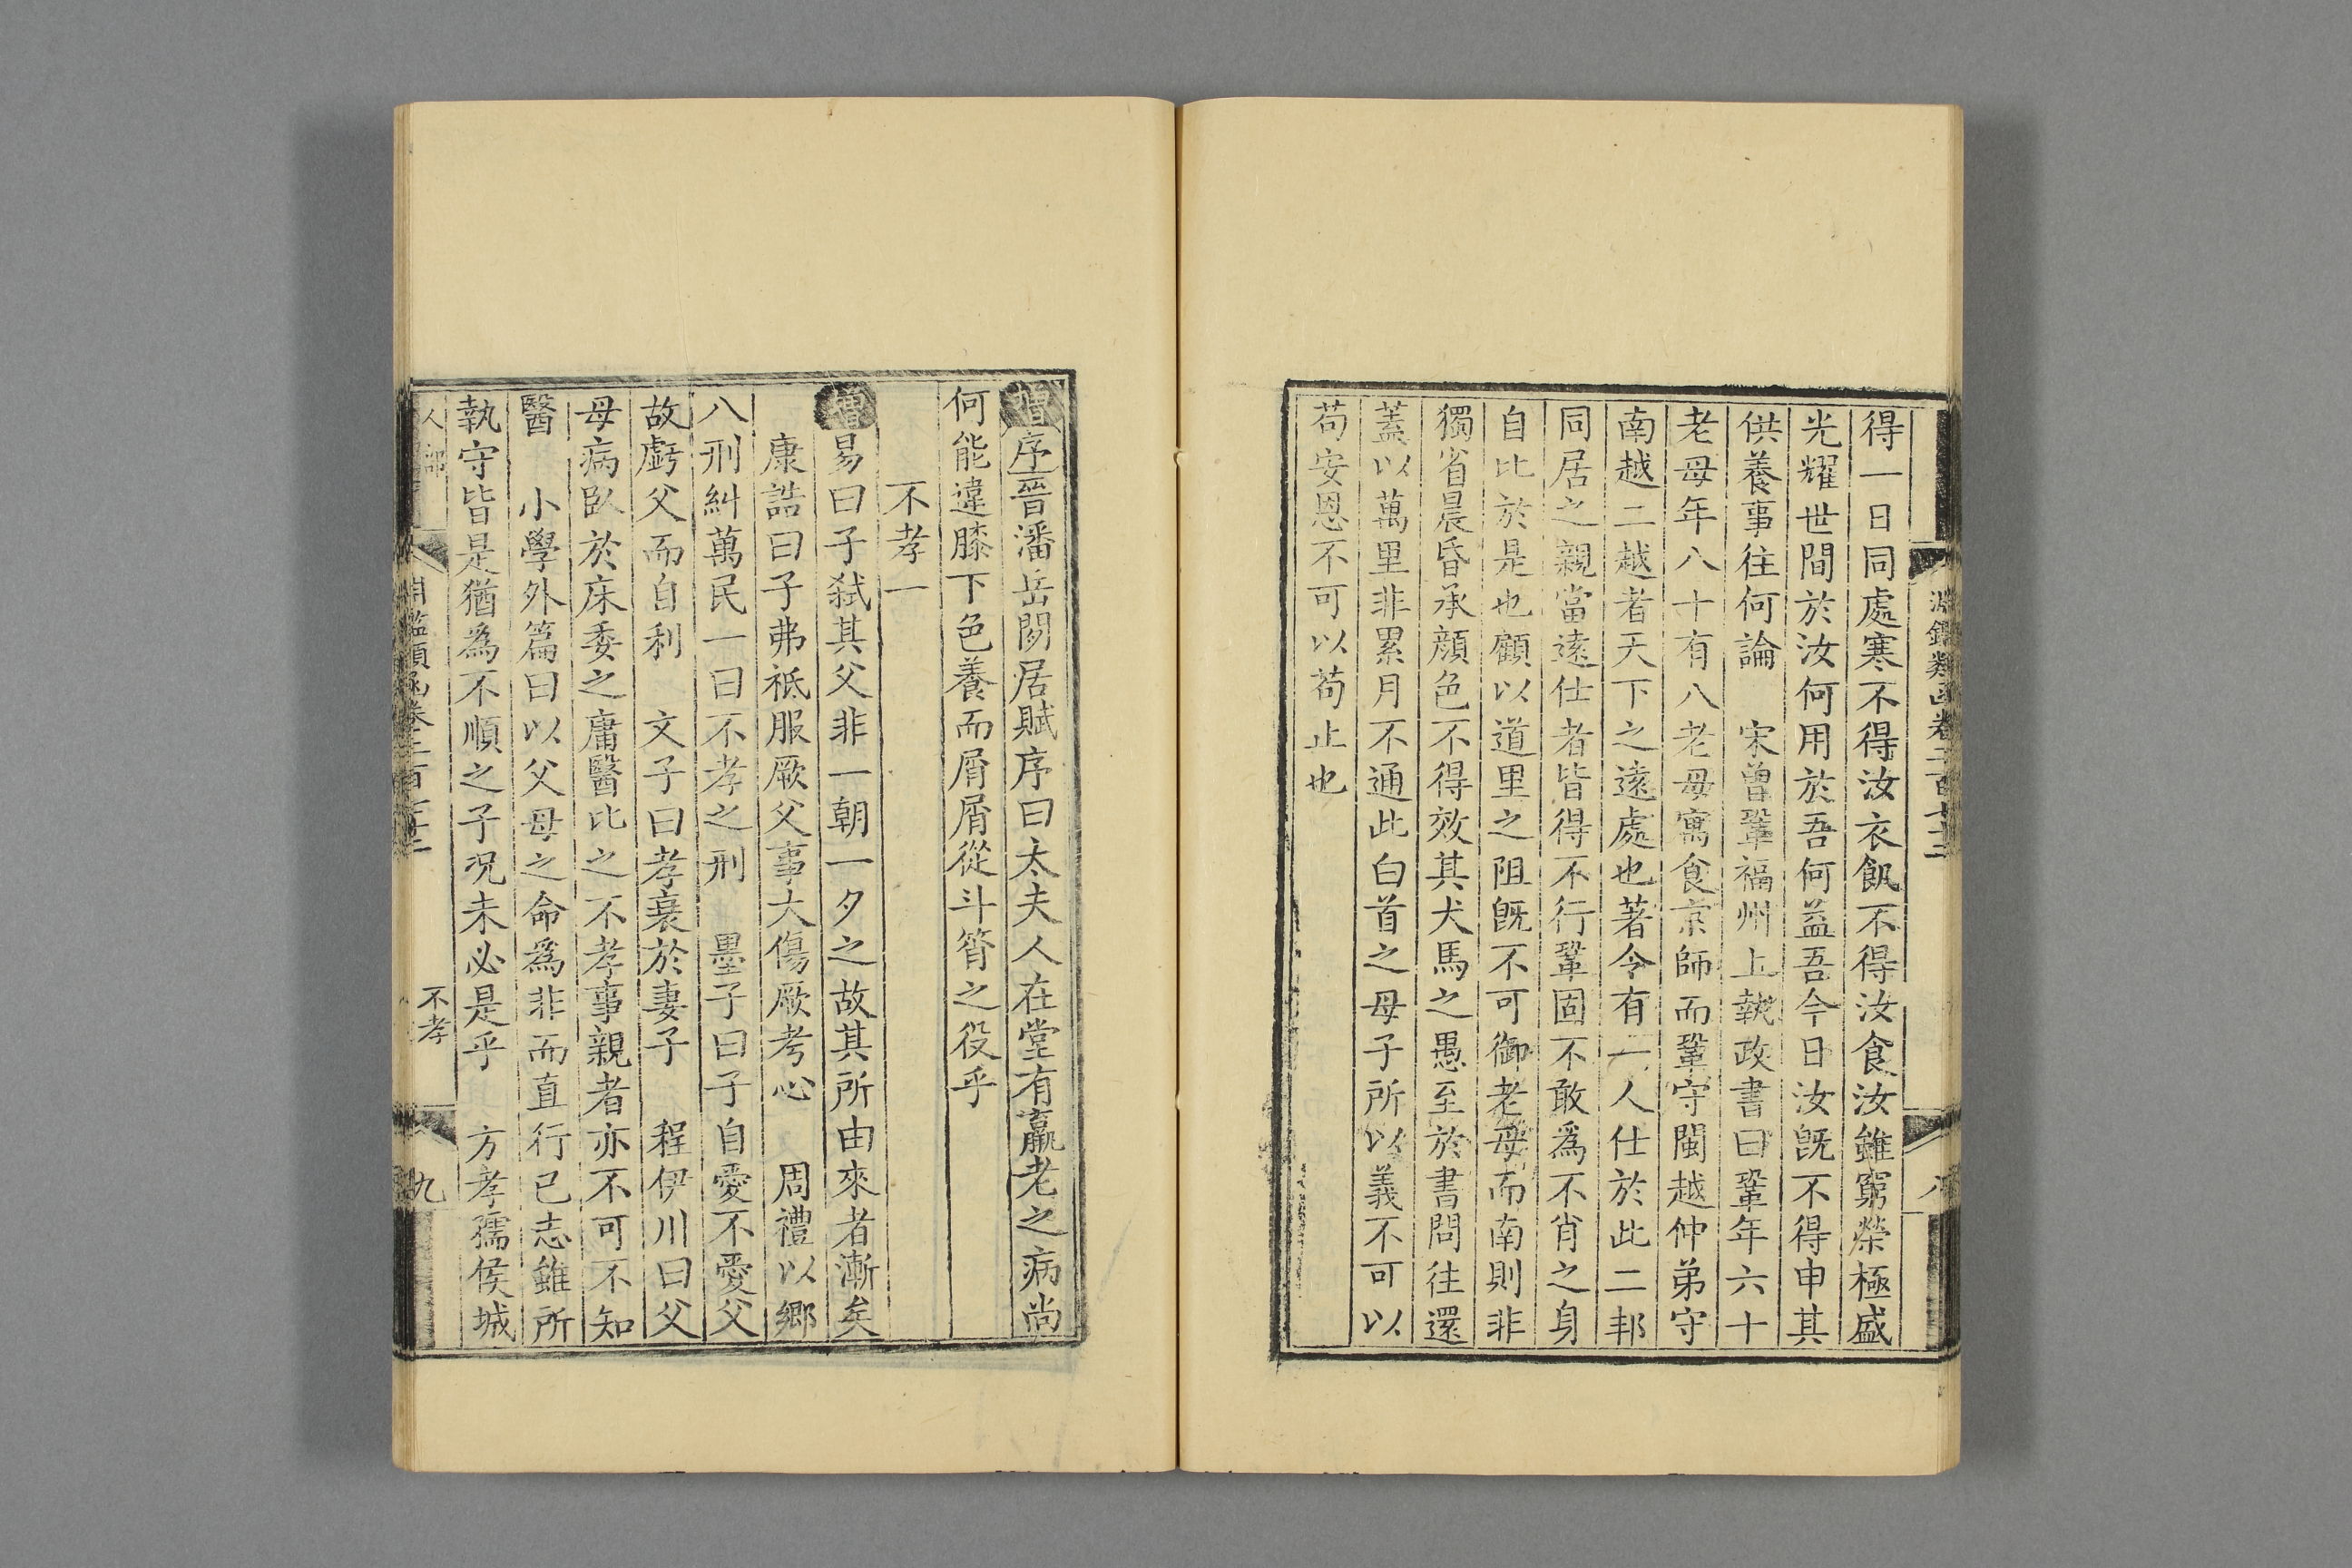 淵鑑類函卷二百七十二
八
得一日同處寒不得汝衣飢不得汝食汝雖窮榮極盛
光耀世間於汝何用於吾何益吾今日汝旣不得申其
供養事往何論　宋曾鞏福州上執政書曰鞏年六十
老母年八十有八老母寓食京師而鞏守閩越仲弟守
南越二越者天下之遠處也著令有一人仕於此二邦
同居之親當遠仕者皆得不行鞏固不敢爲不肖之身
自比於是也顧以道里之阻旣不可御老母而南則非
獨省晨昏承顔色不得效其犬馬之愚至於書問往還
蓋以萬里非累月不通此白首之母子所以義不可以
苟安恩不可以苟止也
增序晉潘岳閒居賦序曰太夫人在堂有羸老之病尚
何能違膝下色養而屑屑從斗筲之役乎
不孝一
增易曰子弑其父非一朝一夕之故其所由來者漸矣
康誥曰子弗祗服厥父事大傷厥考心　周禮以鄉
八刑糾萬民一曰不孝之刑　墨子曰子自愛不愛父
故虧父而自利　文子曰孝衰於妻子　程伊川曰父
母病臥於床委之庸醫比之不孝事親者亦不可不知
醫　小學外篇曰以父母之命爲非而直行已志雖所
執守皆是猶爲不順之子况未必是乎　方孝孺侯城
人部
淵鑑類函卷二百七十二
不孝
九